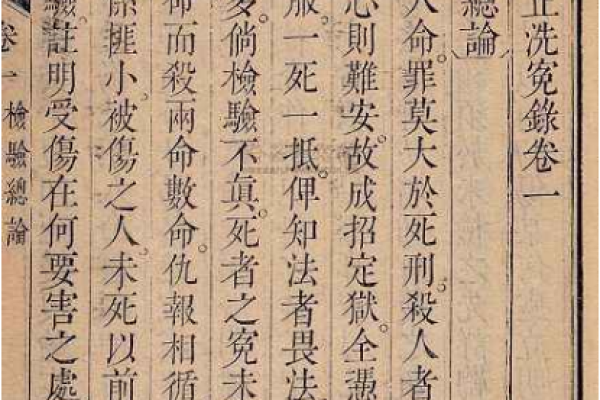 正洗冤錄卷一
總論
人命罪莫大於死刑殺人者
心則難安。故成招定獄。全憑
服。一死一抵。俾知法者畏法
多。倘檢驗不真。死者之冤未
命而殺兩命數命。仇報相循
係捱小。被傷之人。未死以前
驗註明受傷在何要害之處
卷一 檢驗總論